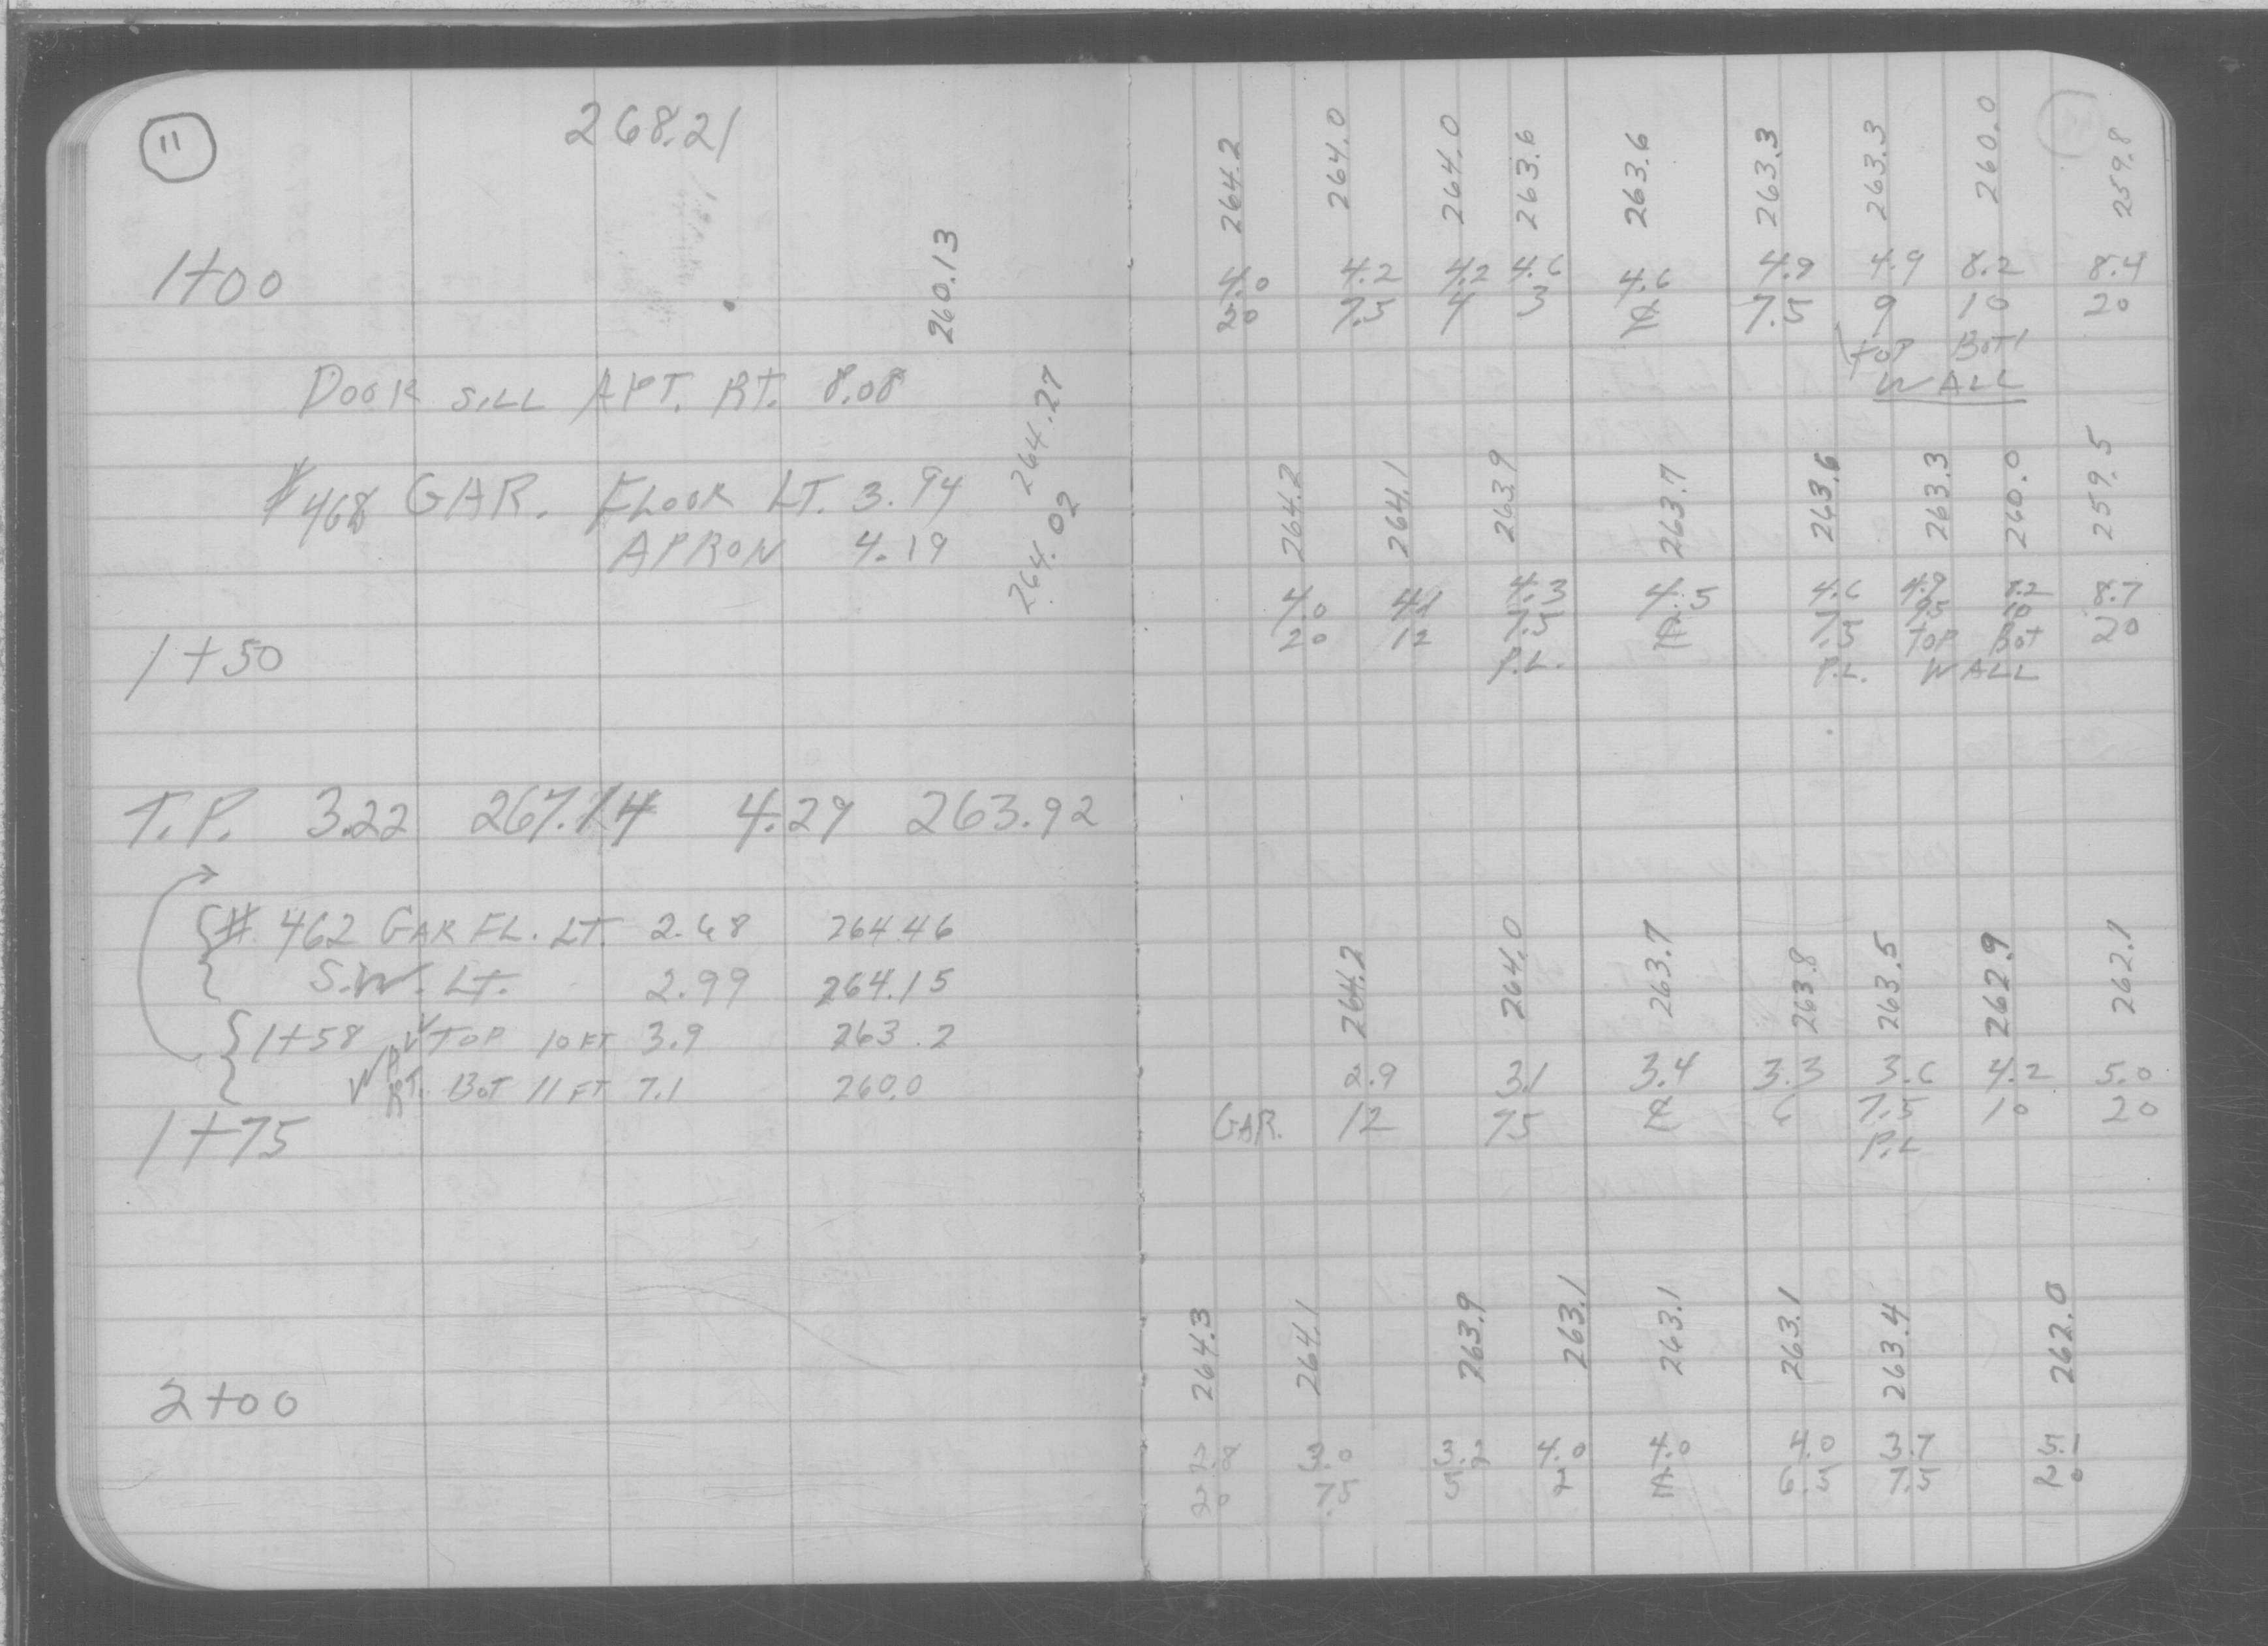 11
268.21
1+00 260.13
DOOR SILL APT. RT. 8.08
#468 GAR. FLOOR LT. 3.94 264.27
APRON 4.19 264.02
1+50
T.P. 3.22 267.14 4.29 263.92
# 462 GAR FL. LT. 2.68 264.46
S.W. LT. 2.99 264.15
1+58 TOP 10 FT 3.9 263.2
RT. BOT 11 FT 7.1 260.0
1+75
2+00
264.2 264.0 264.0 263.6 263.6 263.3 263.3 260.0 259.8
4.0 4.2 4.2 4.6 4.6 4.9 4.9 8.2 8.4
20 7.5 4 3 ℄ 7.5 9 10 20
TOP BOT
WALL
264.2 264.1 263.9 263.7 263.6 263.3 260.0 259.5
4.0 4.1 4.3 4.5 4.6 4.9 8.2 8.7
20 12 7.5 ℄ 7.5 9.5 10 20
P.L. P.L. TOP BOT
WALL
264.2 264.0 263.7 263.8 263.5 262.9 262.1
2.9 3.1 3.4 3.3 3.6 4.2 5.0
GAR. 12 75 ℄ 6 7.5 10 20
P.L
264.3 264.1 263.9 263.1 263.1 263.1 263.4 262.0
2.8 3.0 3.2 4.0 4.0 4.0 3.7 5.1
20 7.5 5 2 ℄ 6.5 7.5 20